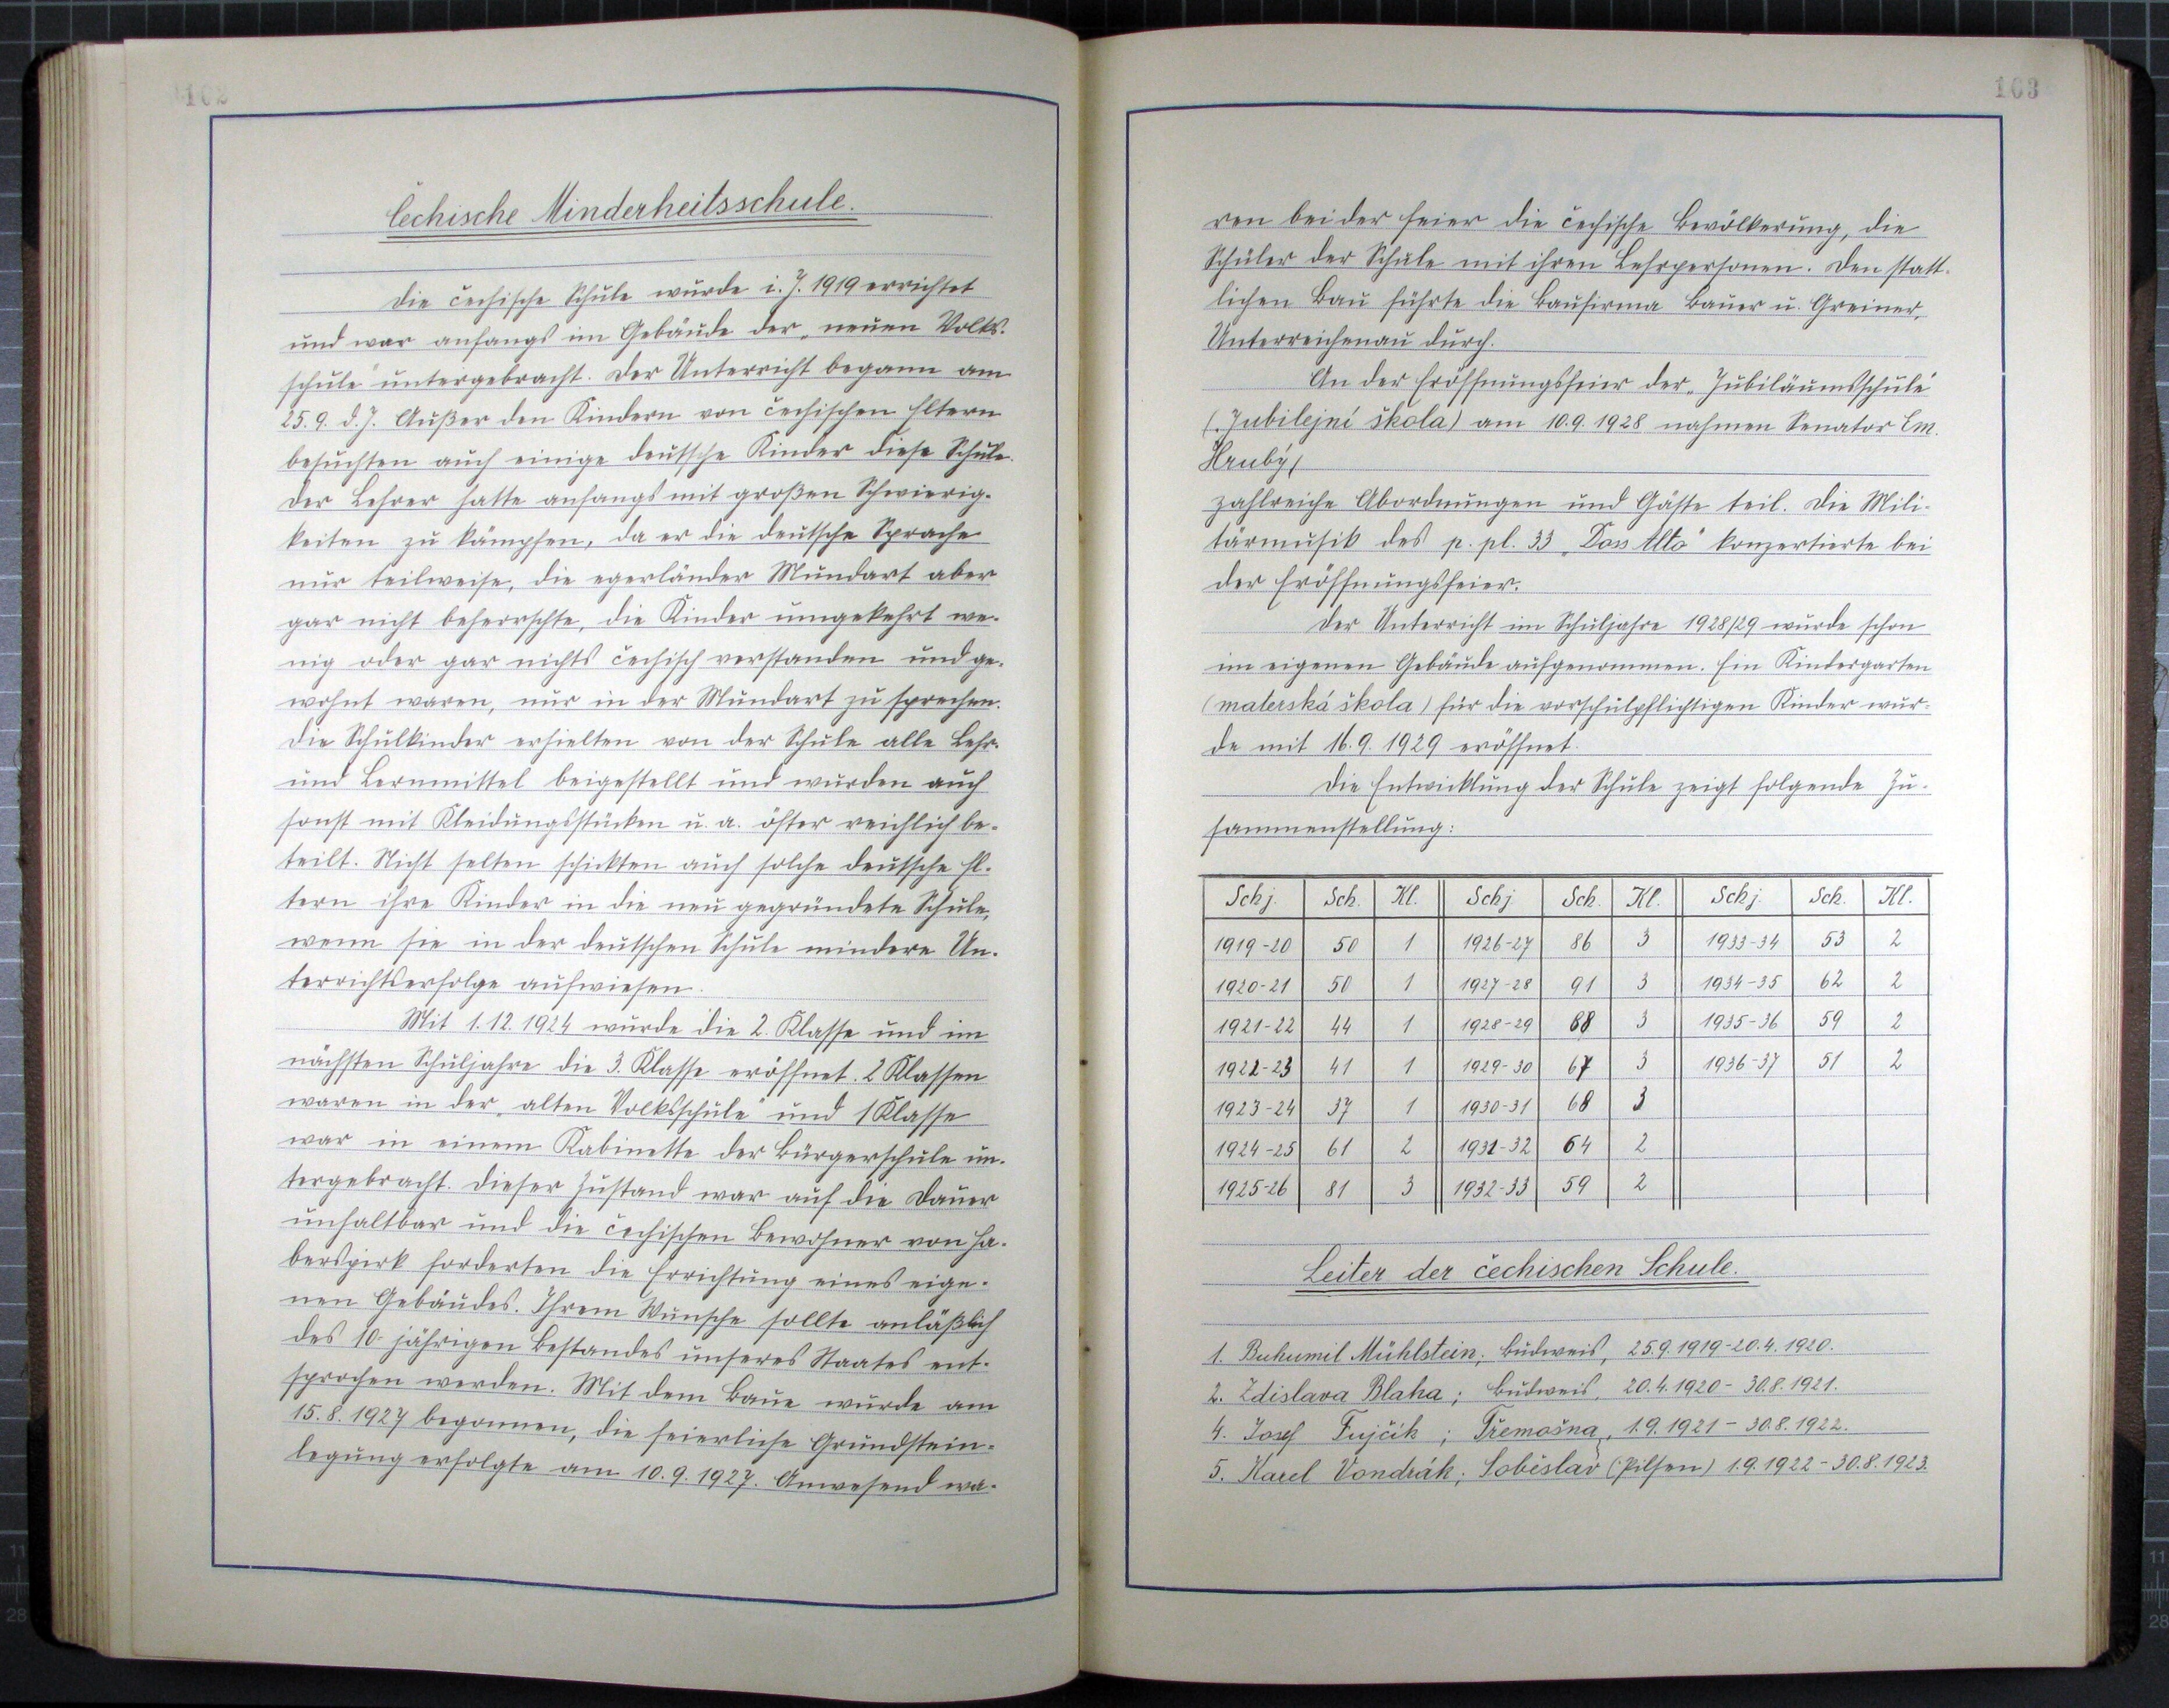 102
Čechische Minderheitsschule.
Die čechische Schule wurde i. J. 1919 errichtet
und war anfangs im Gebäude der „neuen Volks-
schule" untergebracht. Der Unterricht begann am
25. 9. d. J. Außer den Kindern von čechischen Eltern
besuchten auch einige deutsche Kinder diese Schule.
Der Lehrer hatte anfangs mit großen Schwierig-
keiten zu kämpfen, da er die deutsche Sprache
nur teilweise, die egerländer Mundart aber
gar nicht beherrschte, die Kinder umgekehrt we-
nig oder gar nichts čechisch verstanden und ge-
wohnt waren, nur in der Mundart zu sprechen.
Die Schulkinder erhielten von der Schule alle Lehr-
und Lernmittel beigestellt und wurden auch
sonst mit Kleidungsstücken u. a. öfter reichlich be-
teilt. Nicht selten schickten auch solche deutsche El-
tern ihre Kinder in die neu gegründete Schule,
wenn sie in der deutschen Schule mindere Un-
terrichtserfolge aufwiesen.
Mit 1. 12. 1924 wurde die 2. Klasse und im
nächsten Schuljahre die 3. Klasse eröffnet. 2 Klassen
waren in der „alten Volksschule" und 1 Klasse
war in einem Kabinette der Bürgerschule un-
tergebracht. Dieser Zustand war auf die Dauer
unhaltbar und die čechischen Bewohner von Ha-
berspirk forderten die Errichtung eines eige-
nen Gebäudes. Ihrem Wunsche sollte anläßlich
des 10-jährigen Bestandes unseres Staates ent-
sprochen werden. Mit dem Baue wurde am
15. 8. 1927 begonnen, die feierliche Grundstein-
legung erfolgte am 10. 9. 1927. Anwesend wa-
103
ren bei der Feier die čechische Bevölkerung, die
Schüler der Schule mit ihren Lehrpersonen. Den statt-
lichen Bau führte die Baufirma Bauer u. Greiner,
Unterreichenau durch.
An der Eröffnungsfeier der „Jubiläumsschule"
(„Jubilejní škola") am 10. 9. 1928 nahmen Senator Em.
Hrubý,
zahlreiche Abordnungen und Gäste teil. Die Mili-
tärmusik des p. pl. 33 „Doss Alto" konzertierte bei
der Eröffnungsfeier.
Der Unterricht im Schuljahre 1928/29 wurde schon
im eigenen Gebäude aufgenommen. Ein Kindergarten
(materská škola) für die vorschulpflichtigen Kinder wur-
de mit 16. 9. 1929 eröffnet.
Die Entwicklung der Schule zeigt folgende Zu-
sammenstellung:
Schj. Sch. Kl. Schj. Sch. Kl. Schj. Sch. Kl.
1919-20 50 1 1926-27 86 3 1933-34 53 2
1920-21 50 1 1927-28 91 3 1934-35 62 2
1921-22 44 1 1928-29 88 3 1935-36 59 2
1922-23 41 1 1929-30 67 3 1936-37 51 2
1923-24 37 1 1930-31 68 3
1924-25 61 2 1931-32 64 2
1925-26 81 3 1932-33 59 2
Leiter der čechischen Schule.
1. Buhumil Mühlstein; Budweis, 25. 9. 1919 - 20. 4. 1920.
2. Zdislava Blaha; Budweis, 20. 4. 1920 - 30. 8. 1921.
4. Josef Fujčik; Třemošna, 1. 9. 1921 - 30. 8. 1922.
5. Karel Vondrák; Soběslav (Pilsen) 1. 9. 1922 - 30. 8. 1923.